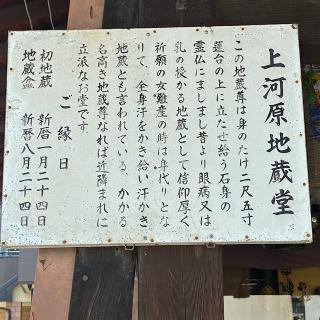 上河原地蔵堂
この地蔵尊は身のたけ二尺五寸
蓮台の上に立たせ給う石身の
霊仏にましまし昔より眼病又は
乳の授かる地蔵として信仰厚く
祈願の女難産の時は身代りとな
りて、全身汗をかき給い汗かき
地蔵とも言われている。かかる
名高き地蔵尊なれば近隣まれに
立派なお堂です。
ご縁日
初地蔵 新暦一月二十四日
地蔵盆 新暦八月二十四日